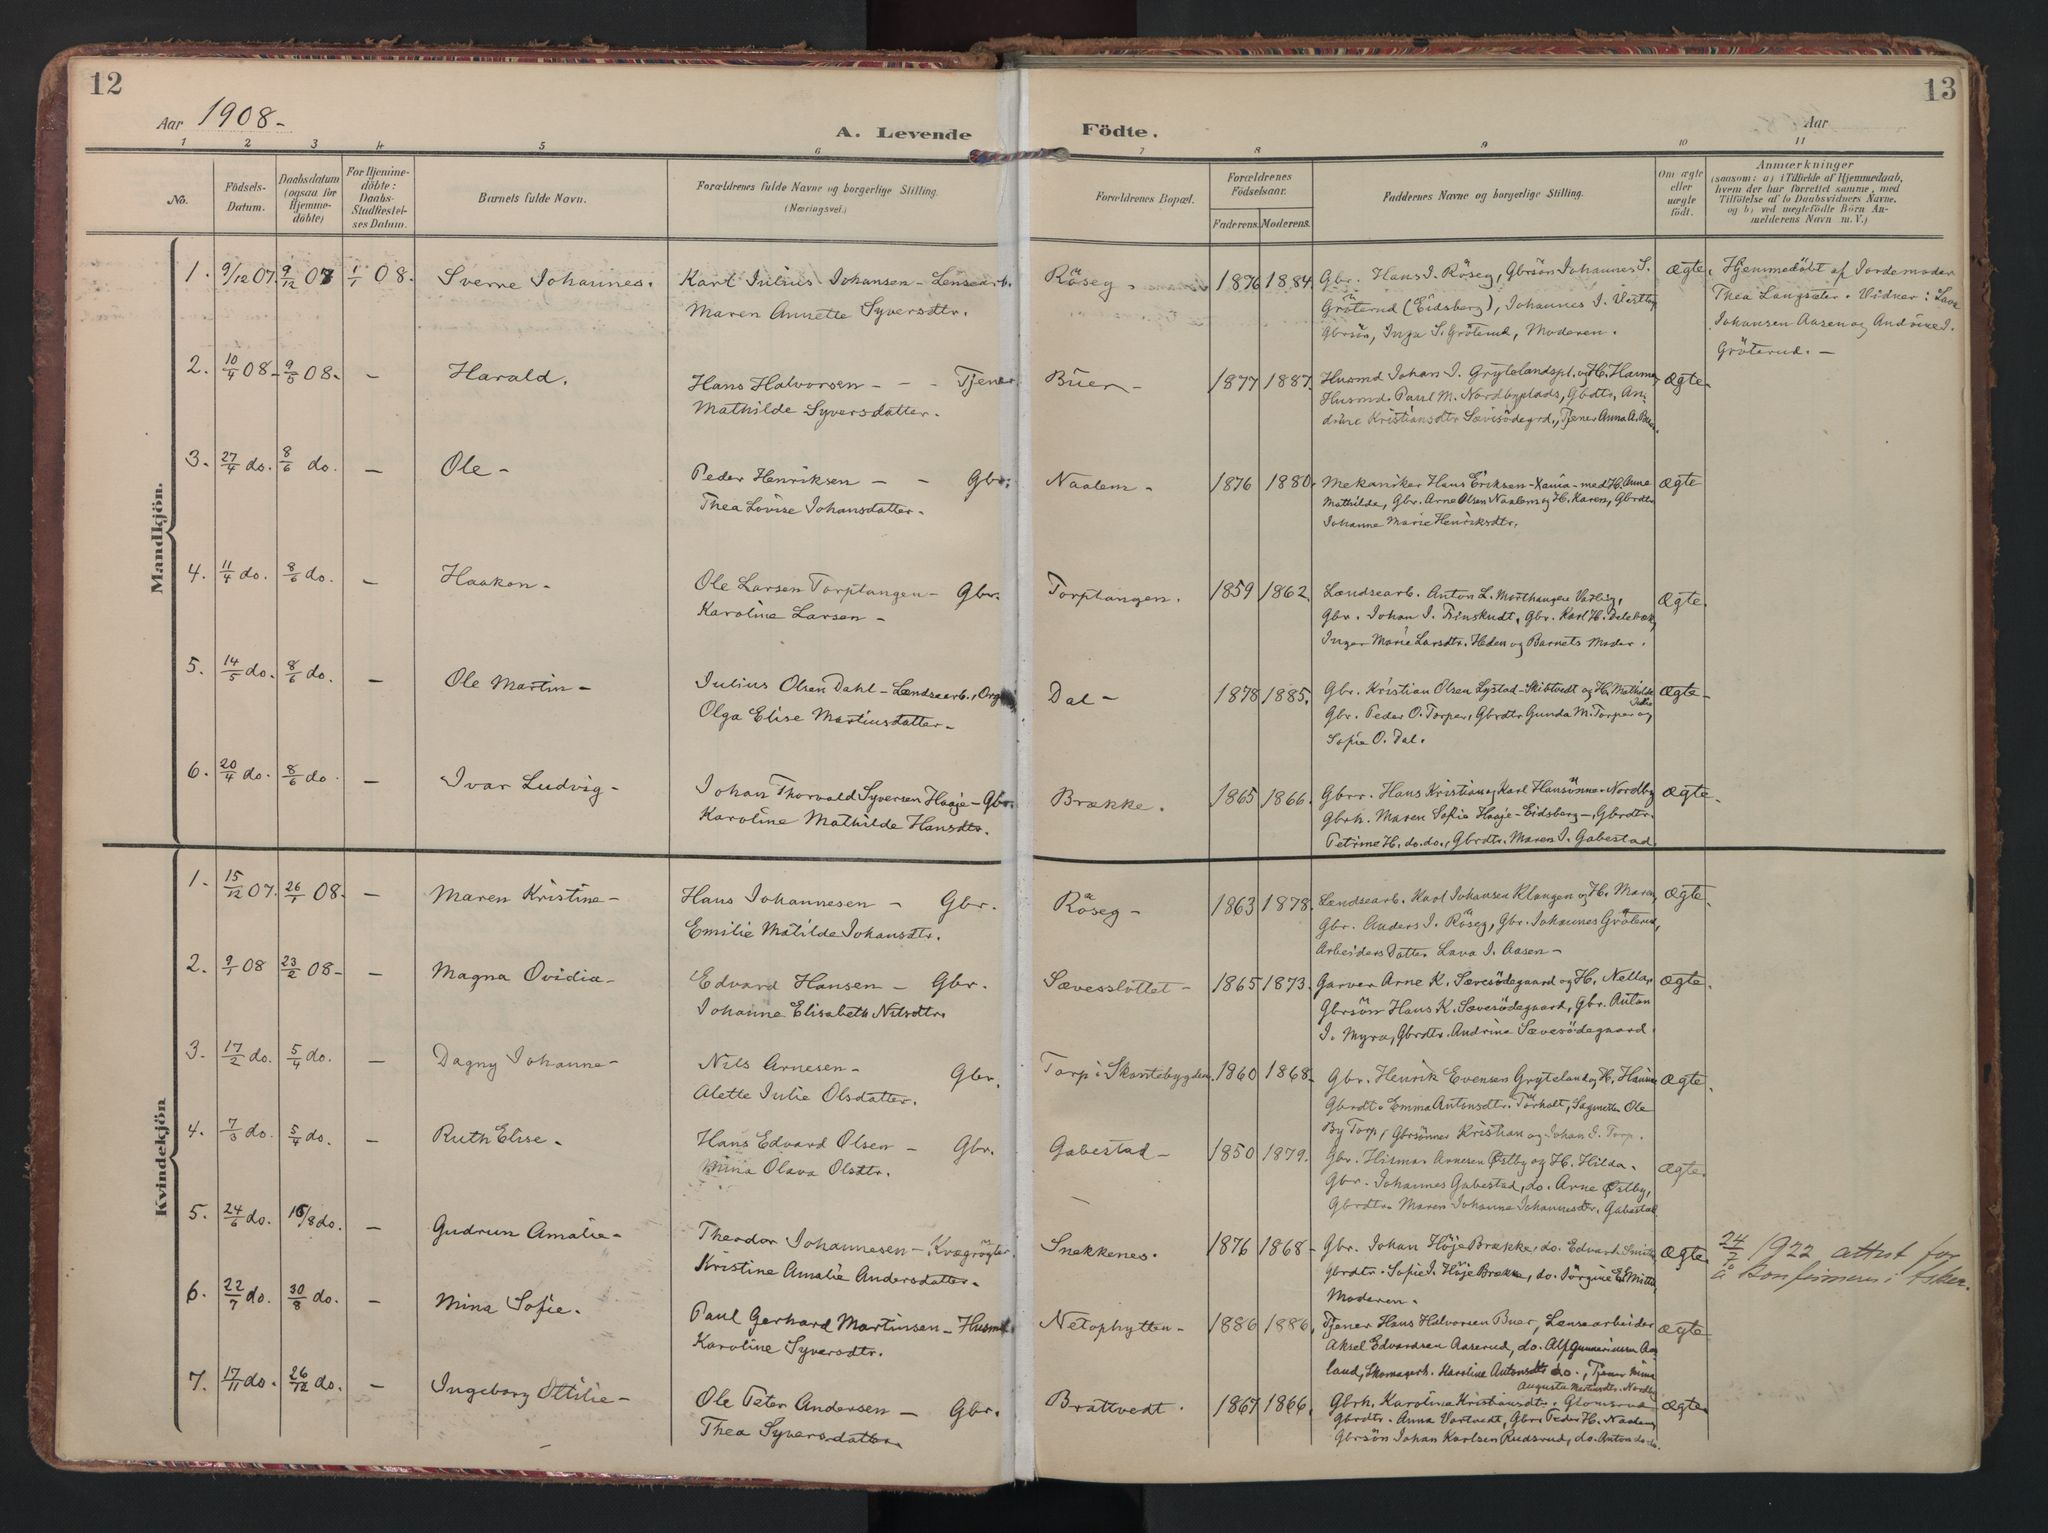 12
13
Aar 1908-
A. Levende
Födte.
Aar
1 2 3 4 5 6 7 8 9 10 11
No.
Födsels-
Datum.
Daabsdatum
(ogsaa for
Hjemme-
döbte)
For Hjemme-
döbte:
Daabs-
Stadfæstel-
ses Datum.
Barnets fulde Navn.
Forældrenes fulde Navne og borgerlige Stilling.
(Næringsvei.)
Forældrenes Bopæl.
Forældrenes
Födselsaar.
Faderens. Moderens.
Faddernes Navne og borgerlige Stilling.
Om ægte
eller
uægte
födt.
Anmærkninger
(saasom: a) i Tilfælde af Hjemmedaab,
hvem der har forrettet samme, med
Tilföielse af to Daabsvidners Navne.
og b) ved uægtefödte Börn An-
melderens Navn m. V.)
Mandkjön.
1. 9/12 07. 9/12 07 1/1 08. Sverre Johannes. Karl Julius Johansen - Lensearb. Röseg. 1876 1884. Gbr. Hans J. Röseg, Gbrsön Johannes S. Ægte. Hjemmedöbt af Jordemoder
Maren Annette Syversdtr. Gröterud (Eidsberg), Johannes J. Vestby Thea Langsæter. Vidner: Lava
Gbrsön, Inga S. Gröterud, Moderen. Johansen Aasen og Andrine J.
Gröterud. -
2. 10/4 08- 9/5 08. - Harald. Hans Halvorsen - - - Tjener Buer - 1877 1887. Husmd Johan J. Grytelandspl. og H. Hanna Ægte-
Mathilde Syversdatter. Husmd. Paul M. Nordbyplads, Gbdtr. An-
drine Kristiansdtr Sævisödegrd., Tjener Anna A. Buer.
3. 27/4 do. 8/6 do. - Ole - Peder Henriksen - - Gbr. Naalem - 1876 1880. Mekaniker Hans Eriksen - Xania - med H. Anna Ægte
Thea Lovise Johansdatter. Mathilde, Gbr. Arne Olsen Naalem og H. Karen, Gbrdtr.
Johanne Marie Henriksdtr.
4. 11/4 do. 8/6 do. - Haakon - Ole Larsen Torptangen - Gbr. Torptangen. 1859 1862. Lændsearb. Anton L. Morthaugen Varteig, Ægte.
Karoline Larsen - Gbr. Johan J. Gbr. Karl H.
Inger Marie Larsdtr. Heden og Barnets Moder.
5. 14/5 do. 8/6 do. - Ole Martin - Julius Olsen Dahl - Lændsearb., Org. Dal - 1878 1885. Gbr. Kristian Olsen Lystad - Skibtvedt og H. Mathilde Ægte-
Olga Elise Martinsdatter - Gbr. Peder O. Torper, Gbrdtr Gunda M. Torper og
Sofie O. Dal.
6. 20/4 do. 8/6 do. - Ivar Ludvig - Johan Thorvald Syversen Haaje - Gbr. Brække. 1865 1866. Gbrr. Hans Kristian og Karl Hansönner Nordby Ægte.
Karoline Mathilde Hansdtr. Gbrk. Maren Sofie Haaje - Eidsberg -, Gbrdtr.
Petrine H. do. do., Gbrdtr. Maren J. Gabestad.
Kvindekjön
1. 15/12 07. 26/1 08. - Maren Kristine - Hans Johannesen - Gbr. Röseg - 1863 1878. Lændsearb. Karl Johansen Klangen og H. Maren Ægte.
Emilie Matilde Johansdtr. Gbr. Anders J. Röseg, Gbr. Johannes Gröterud,
Arbeiders Datter Lava J. Aasen -
2. 9/1 08 23/2 08- - Magna Ovidia - Edvard Hansen - Gbr. Sævesslottet - 1865 1873. Garver Arne K. Sævesödegaard og H. Nella, Ægte.
Johanne Elisabeth Nilsdtr. Gbrsön Hans K. Sævesödegaard, Gbr. Anton
J. Myra, Gbrdtr. Andrina Sævesödegaard.
3. 17/2 do. 5/4 do. - Dagny Johanne - Nils Arnesen - Gbr. Torp i Skantebygden. 1860 1868- Gbr. Henrik Evensen Gryteland og H. Hanna Ægte.
Alette Julie Olsdatter. Gbrdt. Emma Antonsdtr. Torholt, Ole
By Torp, Gbrsönner Kristian og Johan J. Torp.
4. 7/3 do. 5/4 do. - Ruth Elise - Hans Edvard Olsen - Gbr. Gabestad - 1850 1879. Gbr. Hilmar Arnesen Østby og H. Hilda. Ægte.
Mina Olava Olsdtr. Gbr. Johannes Gabestad, do. Arne Østby,
Gbrdtr. Maren Johanna Johannesdtr. Gabestad.
5. 24/6 do. 16/8 do. - Gudrun Amalie - Theodor Johannesen - Kvægrögter. Snekkenes. 1876 1868- Gbr. Johan Höje Brække, do. Edvard Smitt, Ægte. 24/7 1922 attest for
Kristine Amalie Andersdatter - Gbrdtr. Sofie J. Höje Brække, do. Jörgine E. Smitt, å konfirmeres i Asker.
Moderen.
6. 22/7 do. 30/8 do. - Mina Sofie. Paul Gerhard Martinsen - Husmd. Netophytten - 1886 1886. Tjener Hans Halvorsen Buer, Lensearbeider Ægte
Karoline Syversdtr. Aksel Edvardsen Aaserud, do. Alf Aas-
land, Skomagerh. Karoline Antonsdtr do., Tjener Mina
Augusta Martinsdtr. Nordby
7. 17/11 do. 26/12 do. - Ingeborg Ottilie - Ole Peter Andersen - Gbr. Brattvedt. 1867 1866. Gbrk. Karoline Kristiansdtr. Glomsrud Ægte.
Thea Syversdatter. Gbrdtr. Anna Vartvedt, Gbr. Peder H. Naalem,
Gbrsön Johan Karlsen Rudsrud, do. Anton do. do.